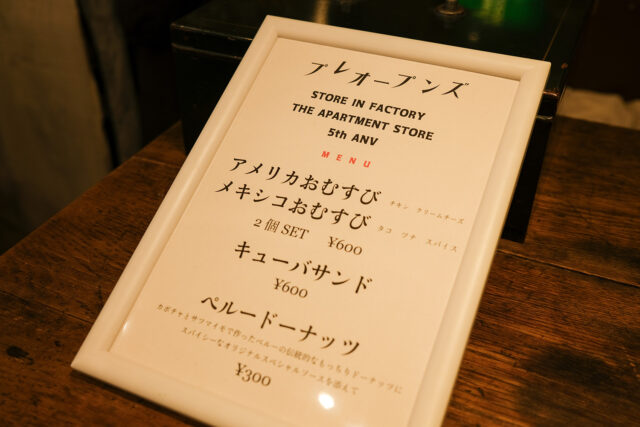 プレオープンズ
STORE IN FACTORY
THE APARTMENT STORE
5th ANV
MENU
アメリカおむすび チキン クリームチーズ
メキシコおむすび タコ ツナ スパイス
2個SET ¥600
キューバサンド
¥600
ペルードーナッツ
カボチャとサツマイモで作ったペルーの伝統的なもっちりドーナッツに
スパイシーなオリジナルスペシャルソースを添えて
¥300